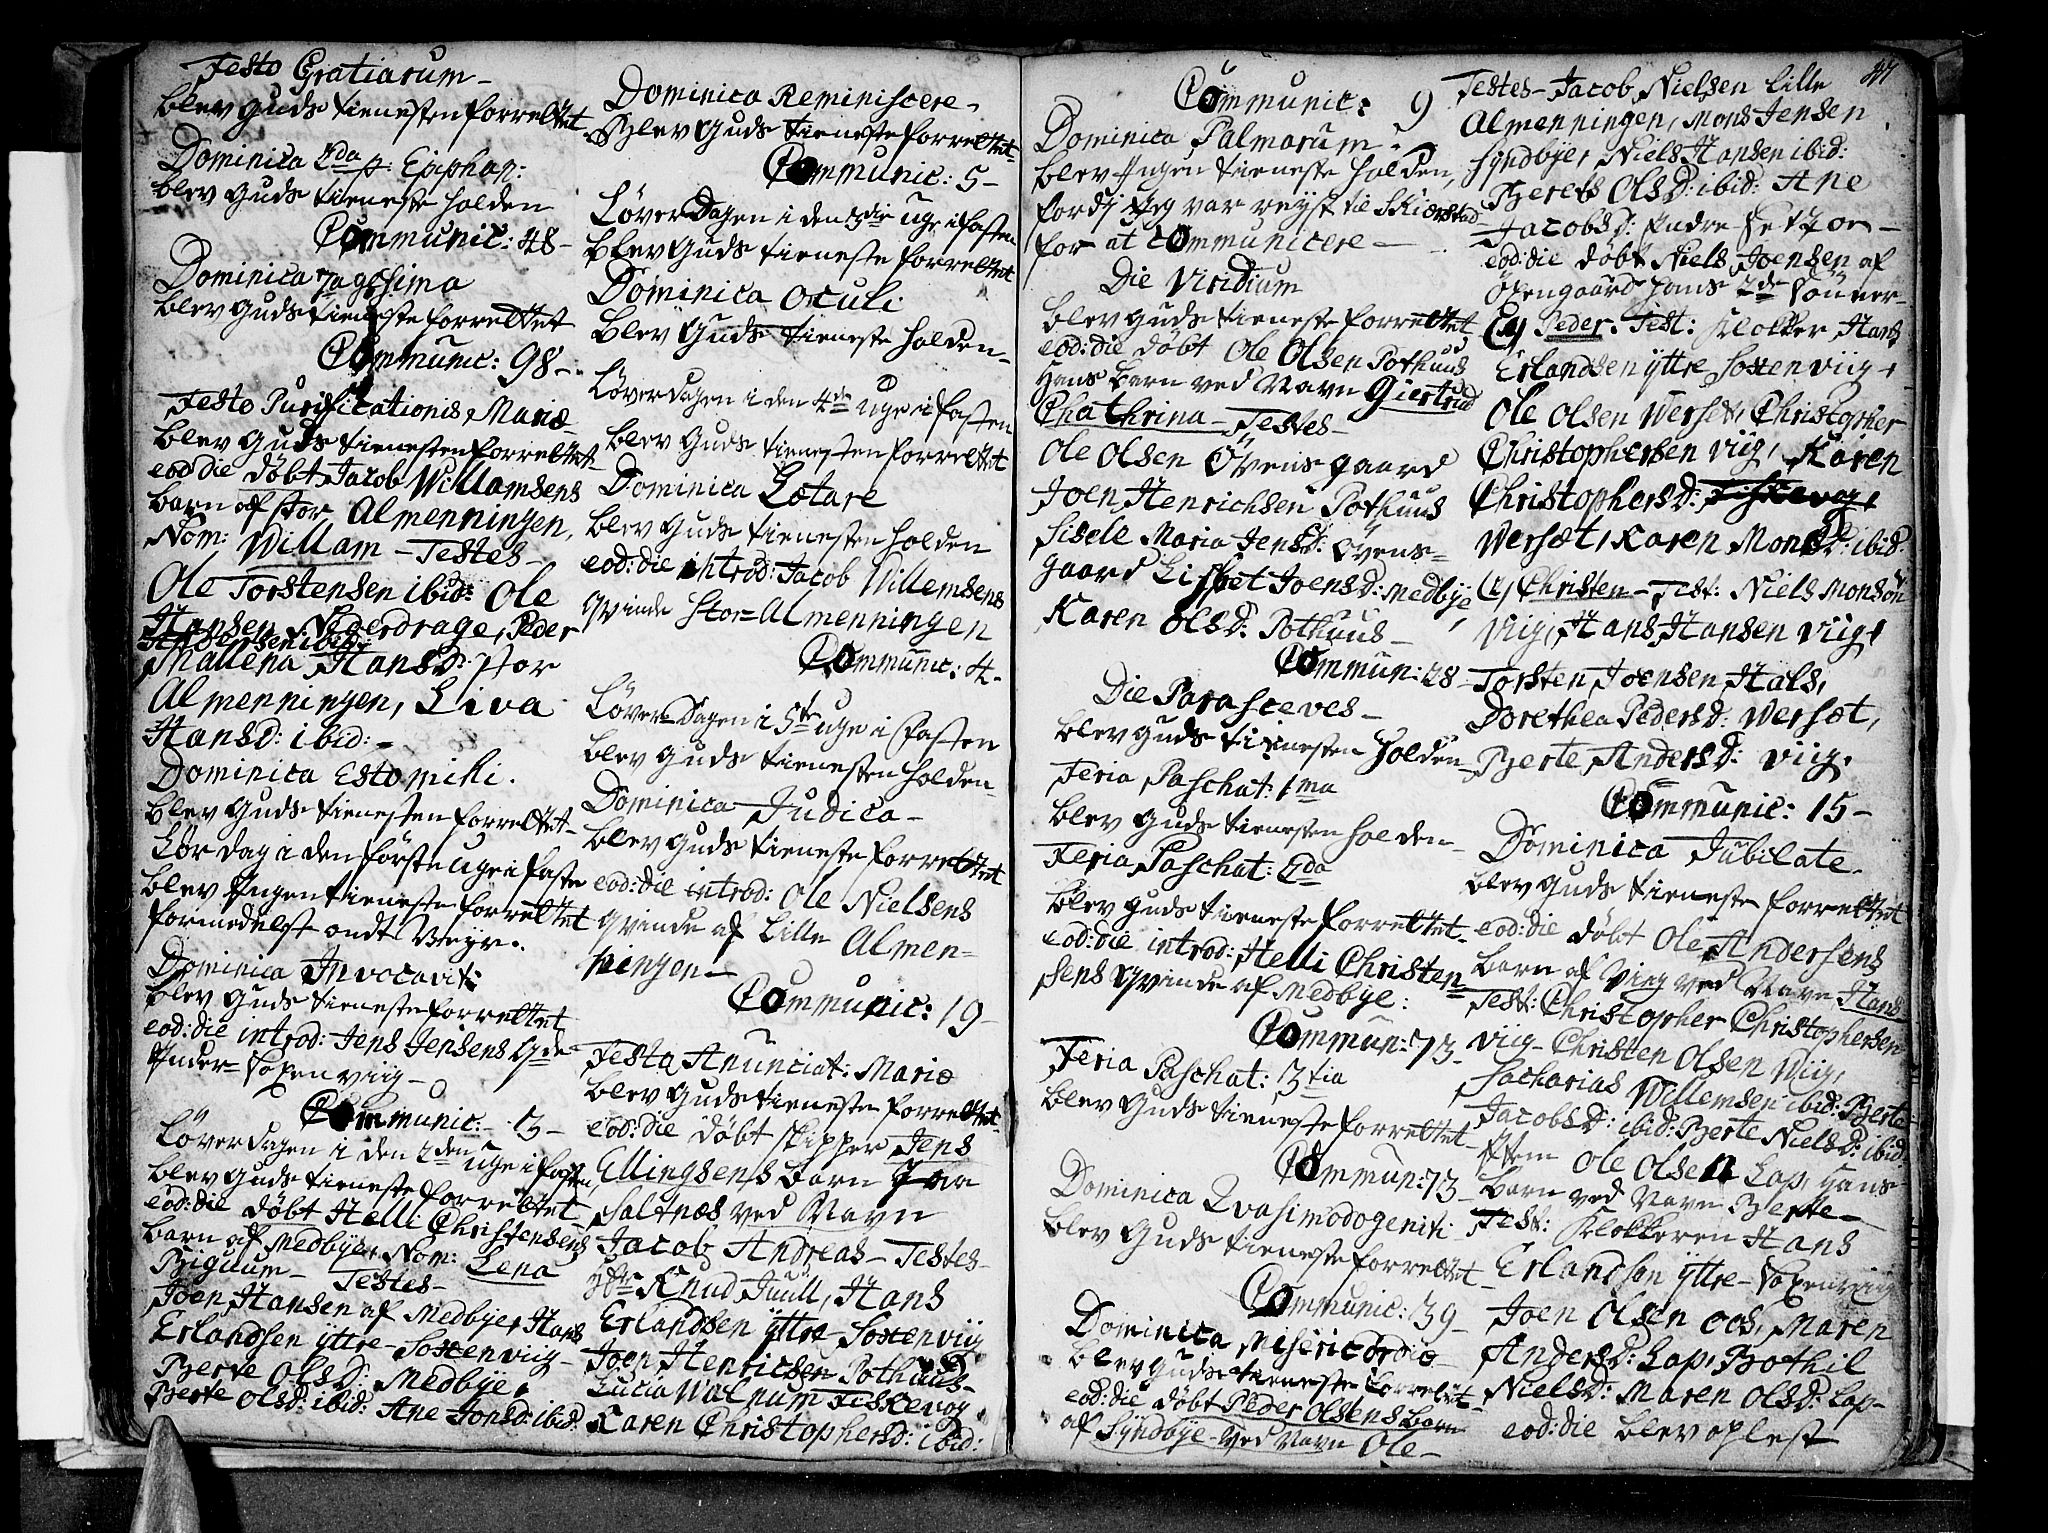 Festo Gratiarum
blev Guds tienesten forrettet
Dominica 2da p. Epiphan:
blev Guds tieneste holden
Communic: 48
Dominica
blev Guds tieneste forrettet
Communic: 98
Festo Purificationis Mariæ
blev Guds tienesten forrettet
eod: die døbt Jacob Willamsens
barn af stor Almenningen,
Nom: Willam - Testes
Ole Torstensen ibid: Ole
Hansen Peder
ibid:
Hansd: stor
Almenningen, Liva
Hansd: ibid:
Dominica Estomihi.
blev Guds tienesten forrettet
Lørdag i den første uge i faste
blev Ingen tieneste forrettet
formedelst ondt Veyr.
Dominica Invocavit:
blev Guds tieneste forrettet
eod: die introd: Jens Jensens Qde
Inder-Soxenviig
Communic: 3
Løverdagen i den 2den uge i fasten
blev Guds tieneste forrettet
eod: die døbt Helli Christensens
barn af Medbye, Nom: Lena
Testes
Joen Hansen af Medbye, Hans
Erlandsen yttre-Soxenviig
Berte Olsd: Medbye,
Berte Olsd: ibid: Ane Jonsd: ibid:
Dominica Reminiscere
Blev Guds tieneste forrettet
Communic: 5
Løverdagen i den 3die uge i fasten
blev Guds tieneste forrettet
Dominica Oculi
Blev Guds tieneste holden
Løverdagen i den 4de uge i fasten
blev Guds tienesten forrettet
Dominica Lætare
blev Guds tienesten holden
eod: die introd: Jacob Willemsens
qvinde Stor-Almenningen
Communic: 4.
Løver-Dagen i 5te uge i fasten
blev Guds tienesten holden
Dominica Judica
blev Guds tieneste forrettet
eod: die introd: Ole Nielsens
qvinde af Lille Almen-
ningen
Communic: 19
Festo Anunciat: Mariæ
blev Guds tieneste forrettet
eod: die døbt skipper Jens
Ellingsens barn fra
Saltnæs ved Navn
Jacob Andreas - Testes
Hr Knud Juull, Hans
Erlandsen yttre Soxenviig
Joen Henricsen Pothuus
Lucia Walnum Fiskevog
Karen Christophersd: ibid:
Communic: 9
Dominica Palmarum
blev Ingen tieneste holden,
fordj Jeg var reyst til Skierstad
for at communicere
Die Viridium
blev Guds tieneste forrettet
eod: die døbt Ole Olsen Pothuus
Hans barn ved Navn Giertrud
Chathrina - Testes
Ole Olsen Øvensgaard
Joen Henrichsen Pothuus
Sisele Maria Jensd: Øvens-
gaard Lisbet Joensd: Medbye,
Karen Olsd: Pothuus
Commun: 28
Die Parasceves
blev Guds tienesten holden
Feria Paschat: 1ma
blev Guds tienesten holden
Feria Paschat: 2da
blev Guds tieneste forrettet
eod: die introd: Helli Christen
sens qvinde af Medbye:
Commun: 73
Feria Paschat: 3tia
blev Guds tieneste forrettet
Commun: 73
Dominica Qvasimodogenit:
blev Guds tieneste forrettet
Communic: 39
Dominica Misericordiæ
blev Guds tieneste forrettet
eod: die døbt Peder Olsens barn
af Syndbye ved Navn Ole
47
Testes - Jacob Nielsen Lille
Almenningen, Mons Jensen
Syndbye, Niels Hansen ibid:
Berets Olsd: ibid: Ane
Jacobsd: Indre
eod: die døbt Niels Joensen af
Øxengaard hans 2de sønner
a) Peder. Test: Klokker Hans
Erlandsen yttre Soxenviig,
Ole Olsen Wersæt, Christopher
Christophersen Viig, Karen
Christophersd:
Wersæt, Karen Monsd: ibid:
Christen - Test: Niels Monson
Viig, Hans Hansen Viig,
Torsten Joensen Hals,
Dorethea Pedersd: Wersæt,
Berte Andersd: Viig.
Communic: 15
Dominica Jubilate
blev Guds tieneste forrettet
eod: die døbt Ole Andersens
barn af Viig ved Navn Hans
Test: Christopher Christophersen
Viig - Christen Olsen Viig,
Sacharias Willemsen ibid: Berte
Jacobsd: ibid: Berte Nielsd: ibid:
Item Ole Olsen Lap, hans
barn ved Navn Berte
Test: Klokkeren Hans
Erlandsen yttre - Soxenviig
Joen Olsen Oos, Maren
Andersd: Lap, Bothil
Nielsd: Maren Olsd: Lap
eod: die blev oplest